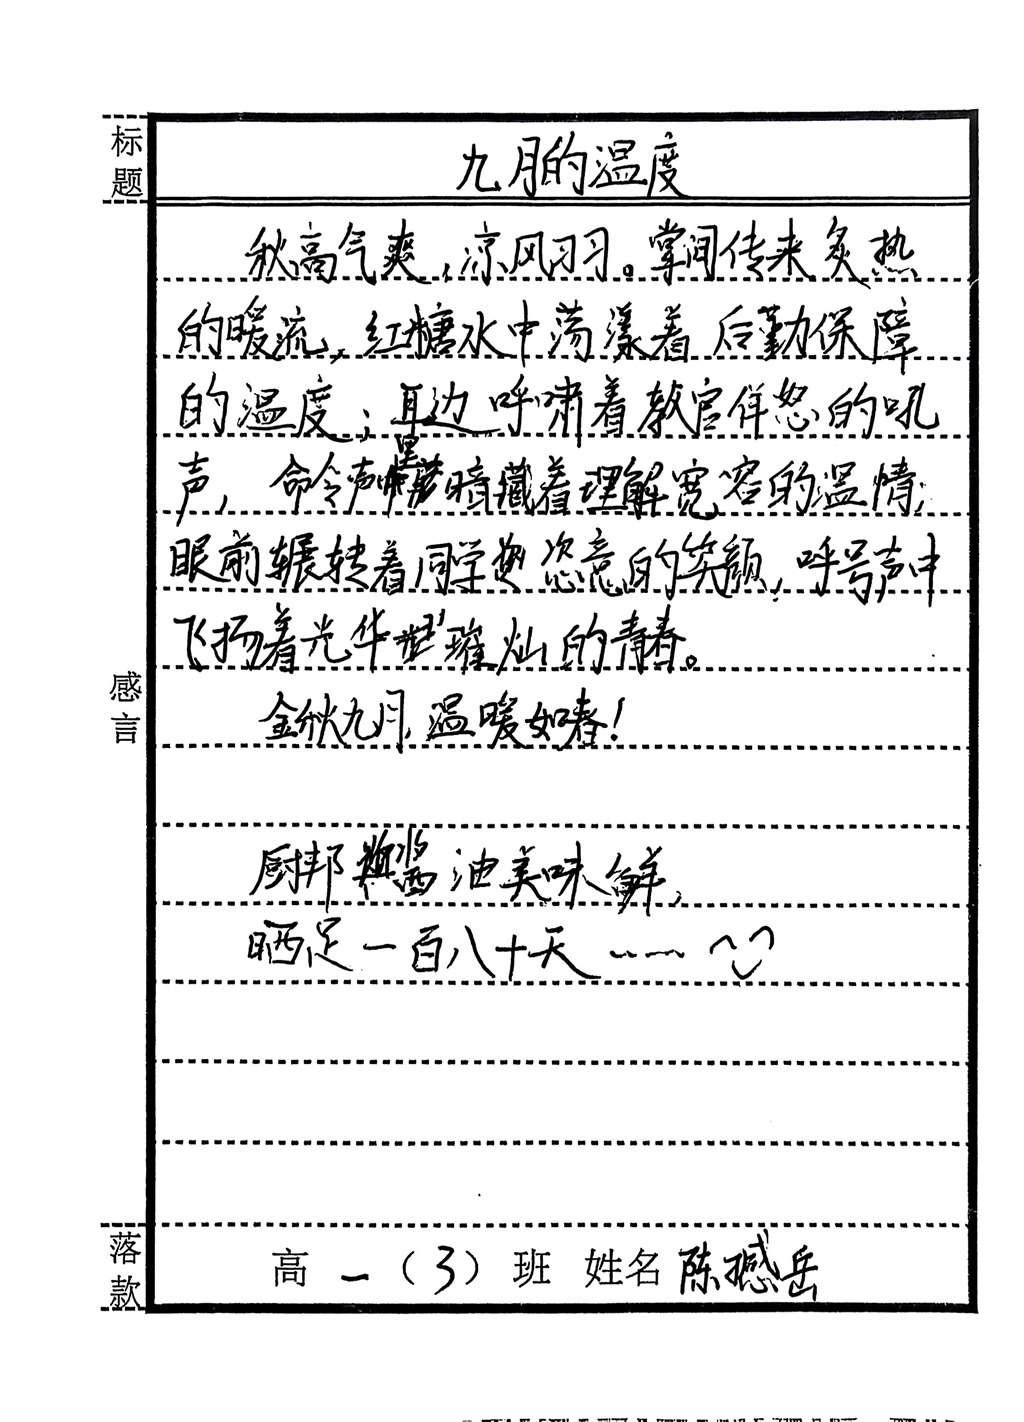 标题
九月的温度
秋高气爽,凉风习习。掌间传来炙热
的暖流,红糖水中荡漾着后勤保障
的温度;耳边呼啸着教官佯怒的吼
声,命令声里暗藏着理解宽容的温情;
眼前辗转着同学恣意的笑颜,呼号声中
飞扬着光华璀灿的青春。
金秋九月,温暖如春!
感言
厨邦酱油美味鲜,
晒足一百八十天……
落款
高一(3)班 姓名 陈撼岳